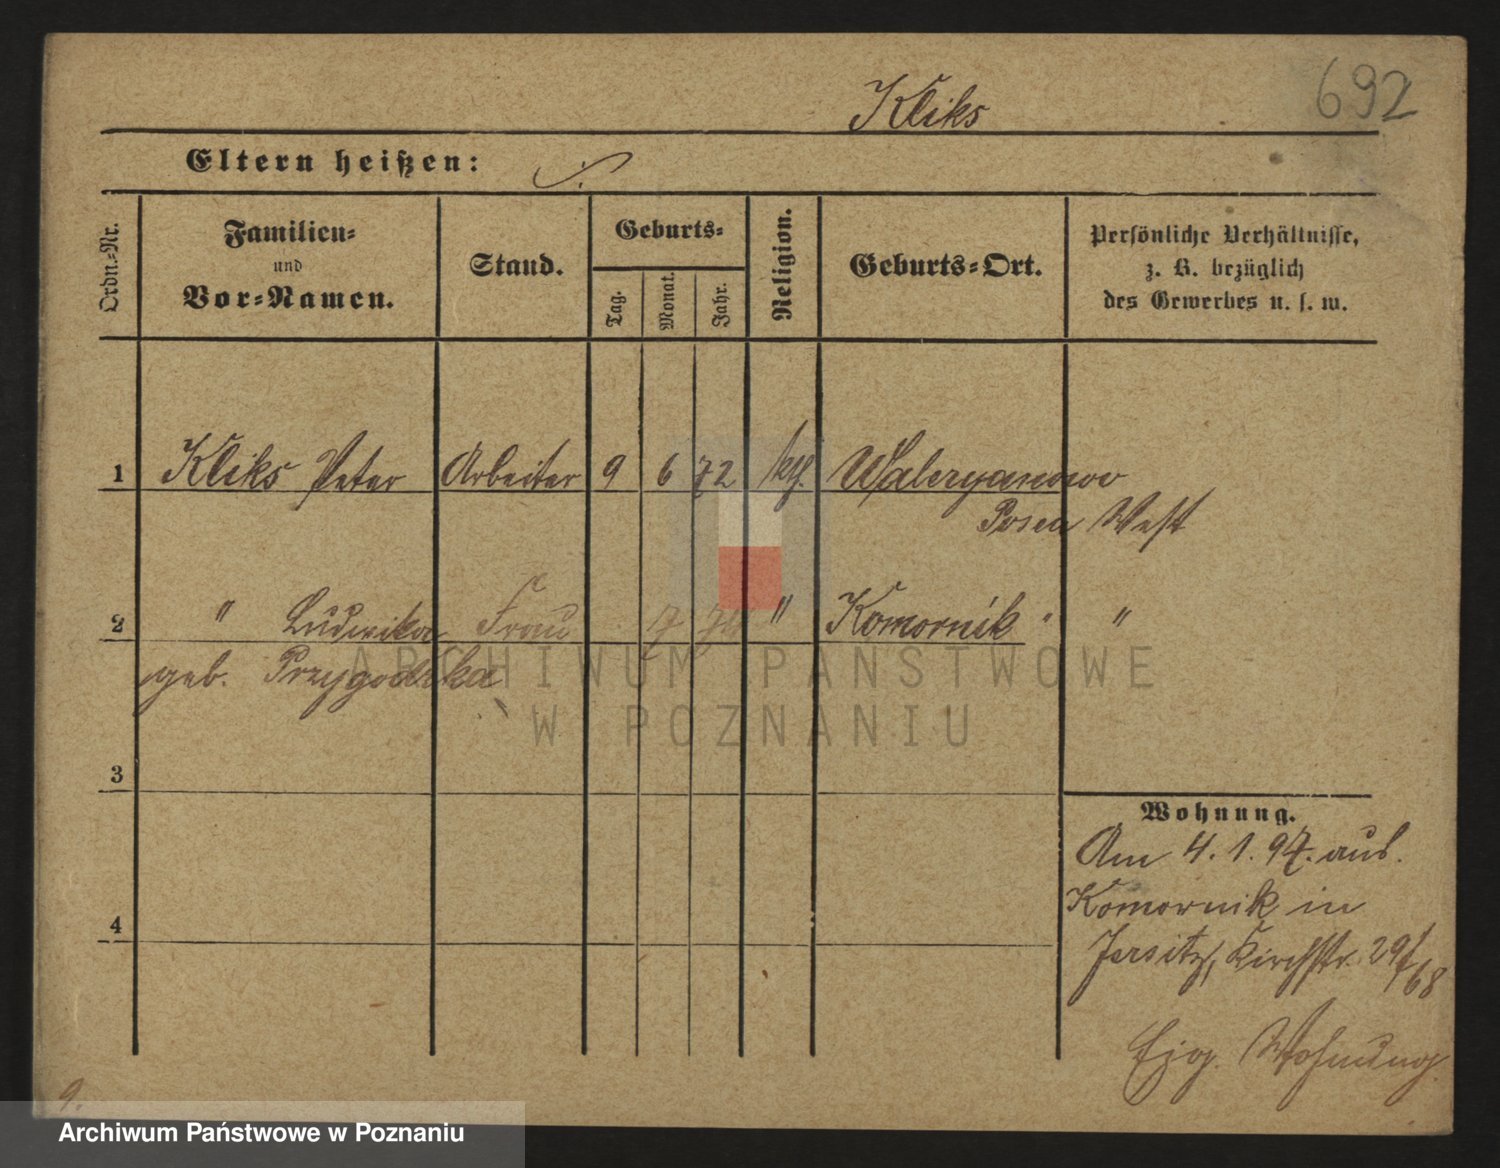 692
Kliks
Eltern heißen:
Ordn.-Nr.
Familien-
und
Vor-Namen.
Stand.
Geburts-
Tag.
Monat.
Jahr.
Religion.
Geburts-Ort.
Persönliche Verhältnisse,
z. B. bezüglich
des Gewerbes u. s. w.
1 Kliks Peter Arbeiter 9 6 72 kth. Waleryanowo
Posen West
2 " Ludwika Frau 7 " Komornik " "
geb. Przygodzka
3
Wohnung.
Am 4. 1. 97. aus.
Komornik in
4
Jersitz, Kirchstr. 29/68
Eig. Wohnung.
9.
ARCHIWUM PAŃSTWOWE
W POZNANIU
Archiwum Państwowe w Poznaniu